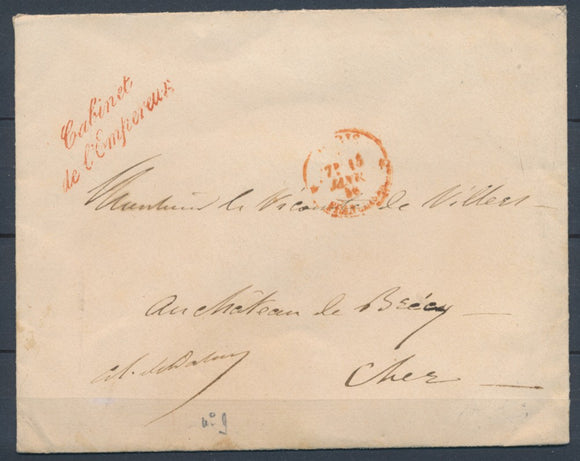 Cabinet
de l'Empereur
PARIS
7E 15
JANV
Monsieur le Vicomte de Villers
au château de Brécy
Cher
n° 9